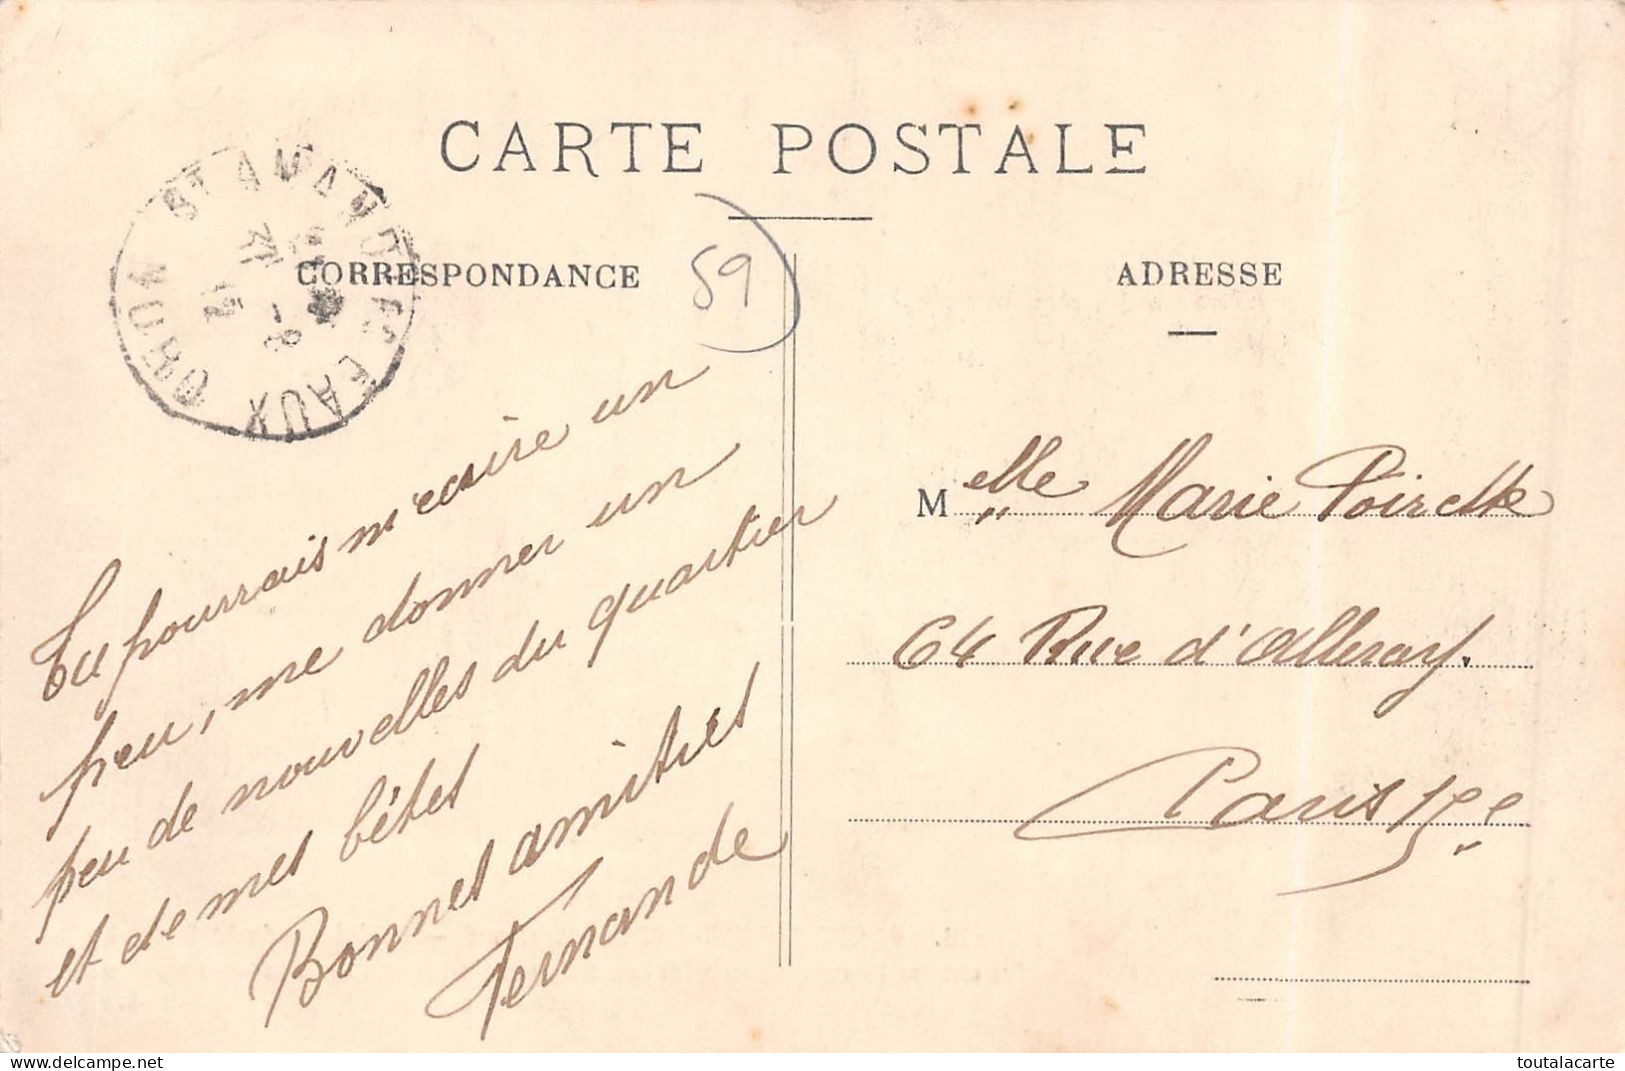 CARTE POSTALE
CORRESPONDANCE
59
ADRESSE
ST AMAND LES EAUX NORD
Tu pourrais m'écrire un
peu, me donner un
peu de nouvelles du quartier
et de mes bêtes
Bonnes amitiés
Fernande
Melle Marie Poirette
64 Rue d'Alleray.
Paris 15e
toutalacarte